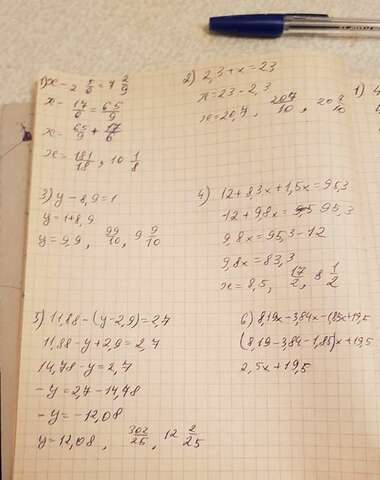 1) x - 2 5/6 = 7 2/9
x - 17/6 = 65/9
x = 65/9 + 17/6
x = 181/18, 10 1/8
2) 2,3 + x = 23
x = 23 - 2,3
x = 20,7, 207/10, 20 7/10
1) 4
3) y - 8,9 = 1
y = 1 + 8,9
y = 9,9, 99/10, 9 9/10
4) 12 + 8,3x + 1,5x = 95,3
12 + 9,8x = 95,3
9,8x = 95,3 - 12
9,8x = 83,3
x = 8,5, 17/2, 8 1/2
5) 11,88 - (y - 2,9) = 2,7
11,88 - y + 2,9 = 2,7
14,78 - y = 2,7
-y = 2,7 - 14,78
-y = -12,08
y = 12,08, 302/25, 12 2/25
6) 8,19x - 3,84x - 1,85x + 19,5
(8,19 - 3,84 - 1,85)x + 19,5
2,5x + 19,5